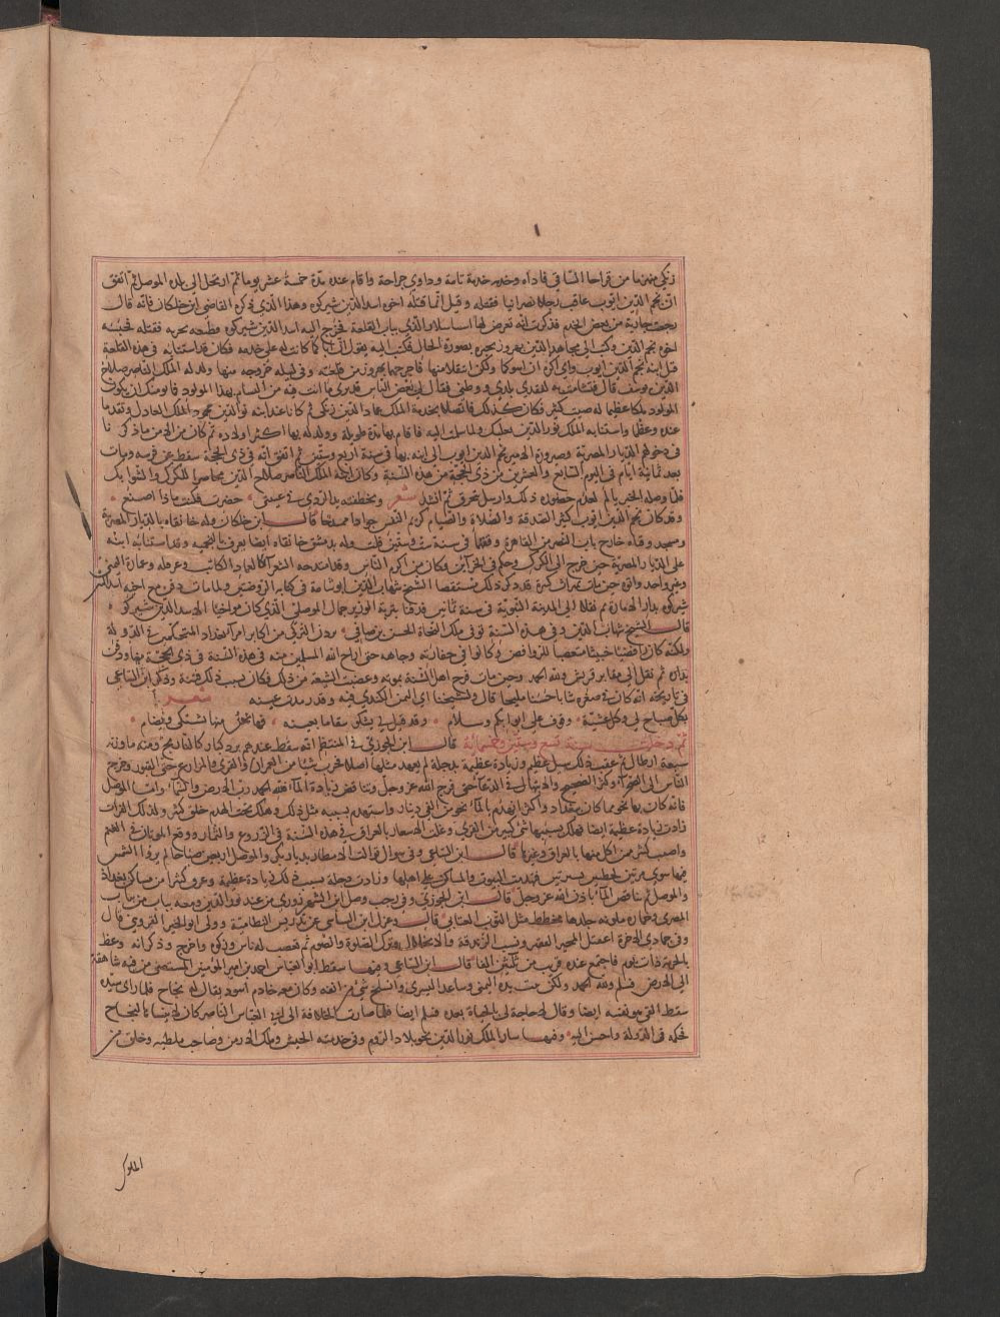 زنكي منهزما من قراجا الساقي فآداه وخدمه خدمة تامة وداوى جراحة واقام عنده مدة خمسة عشر يوما ثم ارتحل الى بلده الموصل ثم اتفق
ان نجم الدين ايوب عاقب رجلا نصرانيا فقتله وقيل انما قتله اخى اسد الدين شيركوه وهذا الذي ذكره القاضي ابن خلكان فانه قال
رجعت جارية من بعض الخدم فذكرت انه تعرض لها اسباسلار الذي بباب القلعة فخرج اليه اسد الدين شيركوه فطعنه بحربه فقتله فحبسه
اخوه نجم الدين وكتب الى مجاهد الدين بهروز يخبره بصورة الحال فكتب اليه يقول ان اباكما كانت له على خدمه فكان قد استنابه في هذه القلعة
قبل ابنه نجم الدين ايوب واني اكره ان اسوكما ولكن انتقلا منها فاخرجهما بهروز من قلعته وفى ليلة خروجه منها ولد له الملك الناصر صلاح
الدين يوسف قال فتشأمت به لفقدي بلدي ووطني فقال لي بعض الناس قد نرى ما انت فيه من التشاؤم بهذا المولود فما يومنك ان يكون
المولود ملكا عظيما له صيت كبير فكان كذلك فاتصلا بخدمة الملك عماد الدين زنكي ثم كانا عند ابنه نور الدين محمود الملك العادل وتقدما
عنده وعظما واستنابه الملك نور الدين ببعلبك ولما سلمت اليه فاقام بها مدة طويلة وولد له بها اكثر اولاده ثم كان من الامر ما ذكرنا
في دخولهم الديار المصرية وصيرورة الامير نجم الدين ايوب الى ابنه بها في سنة اربع وستين ثم اتفق انه في ذي الحجة سقط عن فرسه ومات
بعد ثمانية ايام في اليوم السابع والعشرين من ذى الحجة من هذه السنة وكان ابنه الملك الناصر صلاح الدين محاصرا للكرك والشوبك
فلما وصله الخبر تالم لعدم حضوره ذلك وارسل فتحرق ثم انشد شعر وتخطفته يد الردي في غيبتى حضرت فكنت ماذا اصنع
وقد كان نجم الدين ايوب كثير الصدقة والصلاة والصيام كريم النفس جوادا ممدحا قال ابن خلكان وله خانقاه بالديار المصرية
ومسجد وقناة خارج باب النصر من القاهرة وقفها في سنة ست وستين قلت وله بدمشق خانقاه ايضا تعرف بالنجميه وقد استنابه ابنه
على الديار المصرية حين خرج الى الكرك وحكمه في الخزآين فكان من اكرم الناس وقد امتدحه الشعرآء كالعماد الكاتب وعرقله وعمارة اليمنى
وغير واحد ورثوه حين مات بمراث كثيرة قد ذكر ذلك مستقصا الشيخ شهاب الدين ابو شامة في كتابه الروضتين ولما مات دفن مع اخيه اسد الدين
شيركوه بدار الامارة ثم نقلا الى المدينة النبوية في سنة ثمانين فدفنا بتربة الوزير جمال الموصلى الذي كان مواخيا لاسد الدين شيركوه
قال الشيخ شهاب الدين وفى هذه السنة توفى ملك النحاة الحسن بن صافي بزدن التركي من اكابر امرآء بغداد المتحكمين في الدولة
ولكنه كان رافضيا خبيثا متعصبا للروافض وكانوا في خفارته وجاهه حتى اراح الله المسلمين منه في هذه السنة في ذى الحجة منها ودفن
بداره ثم نقل الى مقابر قريش فلله الحمد وحين مات فرح اهل السنة بموته وغضبت الشيعة من ذلك فكان بسبب ذلك فتنة وذكر ابن الساعي
في تاريخه انه كان في صغره شابا حسنا مليحا قال ولشيخنا ابى اليمن الكندي فيه وقد رمدت عينه شعر
بكل صباح لي وكل عشية وقوف على ابوابكم وسلام وقد قيل لي يشكو سقاما بعينه فها نحن منها نشتكى ونضام
ثم دخلت سنة تسع وستين وخمسماية قال ابن الجوزي في المنتظم انه سقط عندهم برد كبار كالنارنج ومنه ما وزنه
سبعة ارطال ثم عقب ذلك سيل عظيم وزيادة عظيمة بدجلة لم يعهد مثلها اصلا فخرب شيئا من العمران والقرى والمزارع حتى القبور وخرج
الناس الى الصحرآء وكثر الضجيج والابتهال في الدعآء حتى فرج الله عز وجل وتناقص زيادة المآء فلله الحمد رب الارض والسمآء واما الموصل
فانه كان بها نحو مما كان ببغداد واكثر وانهدم بالمآء نحو من الفي دينار واستهدم بسببه مثل ذلك وهلك تحت الهدم خلق كثير وكذلك الفرات
زادت زيادة عظيمة ايضا فهلك بسببها شى كثير من القرى وغلت الاسعار بالعراق في هذه السنة في الزروع والثمار ووقع الموتان في الغنم
واصيب كثير ممن اكل منها بالعراق وغيرها قال ابن الساعي وفى شوال توالت الامطار بديار بكر والموصل اربعين صباحا لم يروا الشمس
فيها سوى مرتين لحظتين يسيرتين فتهدمت البيوت والمساكن على اهلها وزادت دجلة بسبب ذلك زيادة عظيمة وغرق كثير من مساكن بغداد
والموصل ثم تناقص المآء باذن الله عز وجل قال ابن الجوزي وفى رجب وصل ابن الشهرزوري من عند نور الدين ومعه ثياب من ثياب
المصري وحمارة ملونه جلدها مخطط مثل الثوب العتابي قال وعزل ابن الشاشي عن تدريس النظامية وولى ابو الخير القزويني قال
وفى جمادى الاخرة اعتقل المجير الفقيه ونسب الى الزندقة والانحلال وترك الصلوة والصوم ثم تعصب له ناس وزكوه واخرج وذكر انه وعظ
بالحربية ذات يوم فاجتمع عنده قريب من ثلثين الفا قال ابن الساعي وفيها سقط ابو العباس احمد بن امير المؤمنين المستضئ من قبة شاهقة
الى الارض فسلم ولله الحمد ولكن نبت يده اليمنى وساعده اليسرى وانسلخ شى من انفه وكان معه خادم اسود يقال له نجاح فلما راى سيده
سقط القى هو نفسه ايضا وقال لا حاجة لي بالحياة بعده فسلم ايضا فلما صارت الخلافة الى ابي العباس الناصر كان لا ينساها لنجاح
فحكمه في الدولة واحسن اليه وفيها سار الملك نور الدين نحو بلاد الروم وفى خدمته الجيش وملك الارمن وصاحب ملطيه وخلق من
الملوك